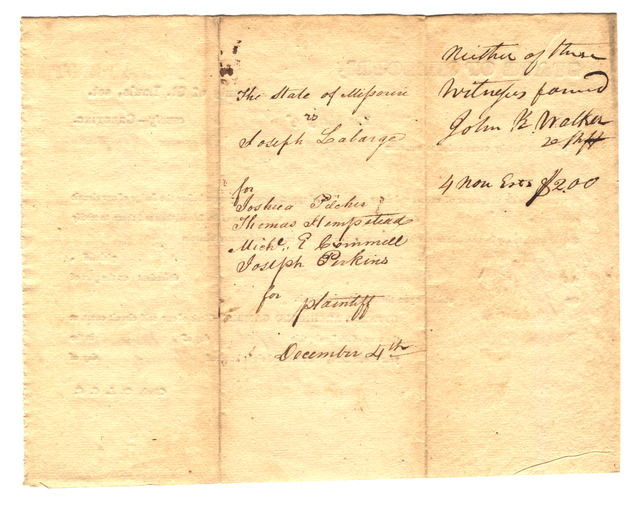 The State of Missouri
vs
Joseph Labarge
for
Joshua Pilcher
Thomas Hempstead
Michl. E
Joseph Perkins
for plaintiff
December 4th
Neither of these
Witnesses found
John K Walker
4 Non Ests $2.00